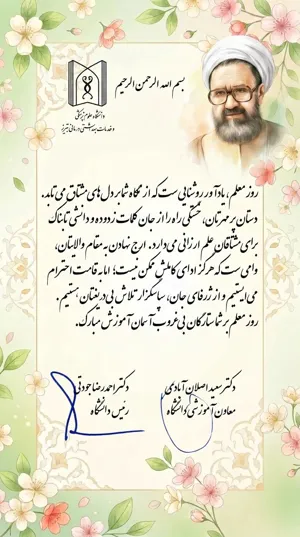 بسم الله الرحمن الرحیم
دانشگاه علوم پزشکی
و خدمات بهداشتی درمانی تبریز
روز معلم، یادآور روشنایی‌ست که از نگاه شما بر دل‌های مشتاق می‌تابد.
دستان پرمهرتان، خستگی راه را از جان کلمات زدوده و دانشی تابناک
برای مشتاقان علم ارزانی می‌دارد. ارج نهادن به مقام والایتان،
وامی ست که هرگز ادای کاملش ممکن نیست؛ اما به قامت احترام
می‌ایستیم و از ژرفای جان، سپاسگزار تلاش بی‌دریغتان هستیم.
روز معلم بر شما ستارگان بی‌غروب آسمان آموزش مبارک.
دکتر سعید اصلان‌آبادی
معاون آموزشی دانشگاه
دکتر احمدرضا جودتی
رئیس دانشگاه